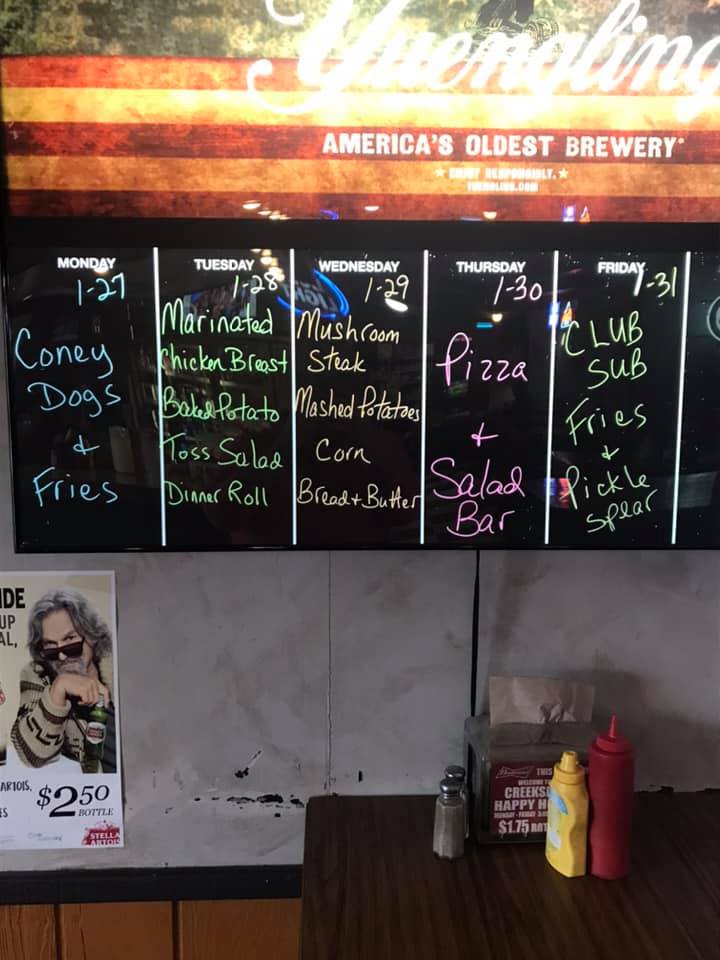 Yuengling
AMERICA'S OLDEST BREWERY
ENJOY RESPONSIBLY.
YUENGLING.COM
MONDAY
1-27
Coney
Dogs
&
Fries
TUESDAY
1-28
Marinated
Chicken Breast
Baked Potato
Toss Salad
Dinner Roll
WEDNESDAY
1-29
Mushroom
Steak
Mashed Potatoes
Corn
Bread + Butter
THURSDAY
1-30
Pizza
+
Salad
Bar
FRIDAY
1-31
CLUB
SUB
Fries
+
Pickle
Spear
IDE
UP
AL,
ARTOIS,
ES
$2.50
BOTTLE
STELLA
ARTOIS
Budweiser
THIS
WELCOME TO
CREEKS
HAPPY H
MONDAY - FRIDAY
$1.75